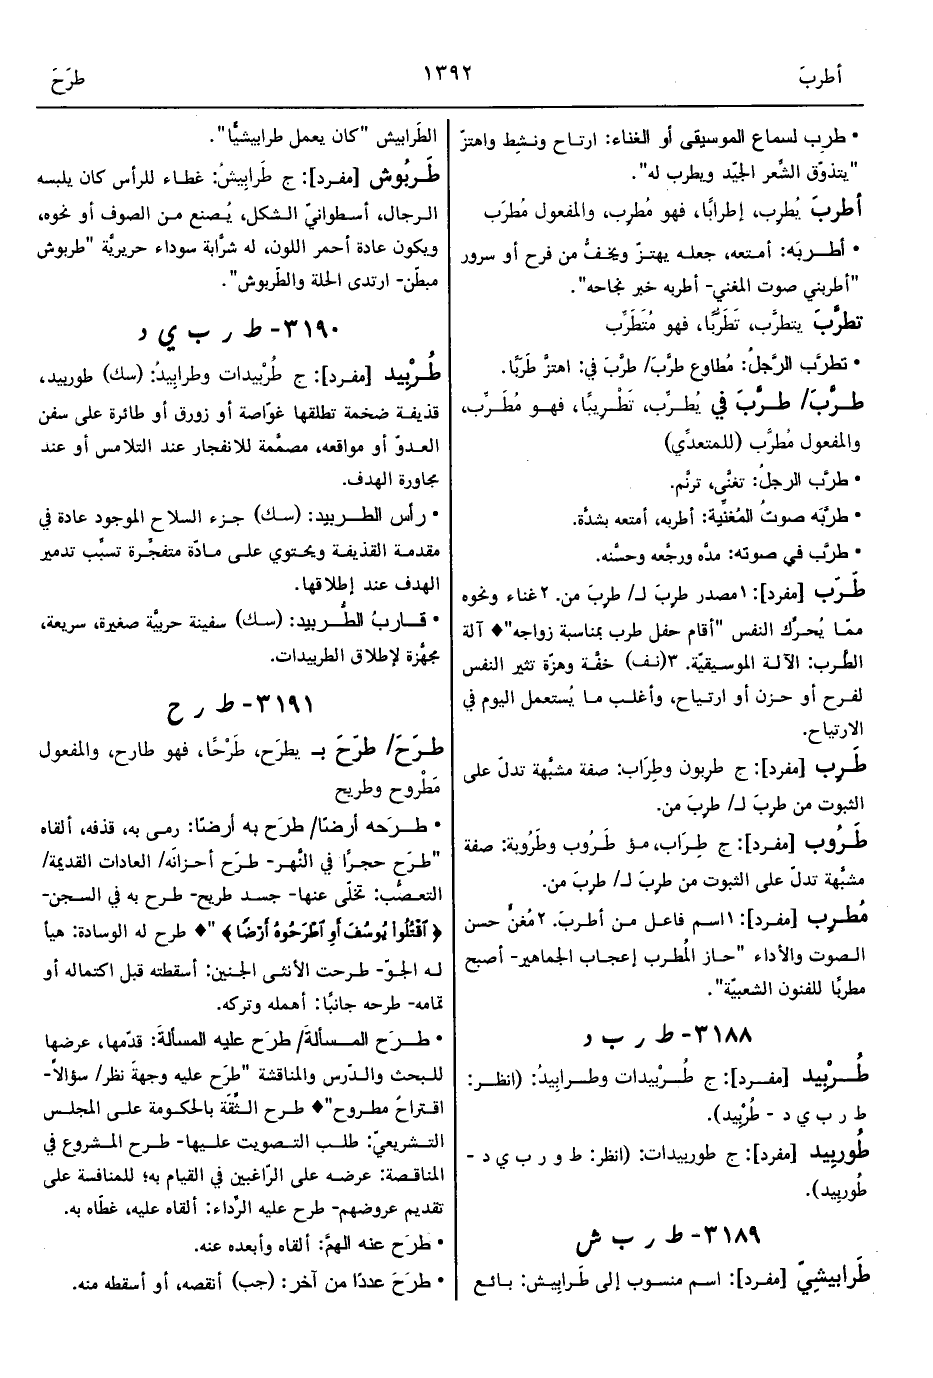 أطربَ
١٣٩٢
طرَحَ
• طرِب لسماع الموسيقى أو الغناء: ارتاح ونشِط واهتزّ
"يتذوّق الشِّعر الجيّد ويطرب له".
أطربَ يُطرِب، إطرابًا، فهو مُطرِب، والمفعول مُطرَب
• أطربَه: أمتعه، جعله يهتزّ ويخفُّ من فرح أو سرور
"أطربني صوت المغني- أطربه خبر نجاحه".
تطرَّبَ يتطرَّب، تَطَرُّبًا، فهو مُتَطَرِّب
• تطرَّب الرَّجلُ: مُطاوع طرَّبَ/ طرَّبَ في: اهتزَّ طَرَبًا.
طرَّبَ/ طرَّبَ في يُطرِّب، تَطْرِيبًا، فهو مُطَرِّب،
والمفعول مُطرَّب (للمتعدِّي)
• طرَّب الرجلُ: تغنَّى، ترنَّم.
• طرَّبَه صوتُ المُغنِّية: أطربه، أمتعه بشدَّة.
• طرَّب في صوته: مدَّه ورجَّعه وحسَّنه.
طَرَب [مفرد]: ١مصدر طرِبَ لـ/ طرِبَ من. ٢غناء ونحوه
ممّا يُحرِّك النفس "أقام حفل طرب بمناسبة زواجه"♦ آلة
الطَّرب: الآلة الموسيقيّة. ٣(نف) خفَّة وهزّة تثير النفس
لفرح أو حزن أو ارتياح، وأغلب ما يُستعمل اليوم في
الارتياح.
طَرِب [مفرد]: ج طرِبون وطِرَاب: صفة مشبَّهة تدلّ على
الثبوت من طرِبَ لـ/ طرِبَ من.
طَرُوب [مفرد]: ج طِرَاب، مؤ طَرُوب وطَرُوبة: صفة
مشبَّهة تدلّ على الثبوت من طرِبَ لـ/ طرِبَ من.
مُطرِب [مفرد]: ١اسم فاعل من أطربَ. ٢مُغنٍّ حسن
الصوت والأداء "حاز المُطرب إعجاب الجماهير- أصبح
مطربًا للفنون الشعبيّة".
٣١٨٨- ط ر ب د
طُرْبِيد [مفرد]: ج طُرْبيدات وطرابِيدُ: (انظر:
ط ر ب ي د - طُرْبِيد).
طُورِبِيد [مفرد]: ج طوربيدات: (انظر: ط و ر ب ي د -
طُورِبِيد).
٣١٨٩- ط ر ب ش
طَرابيشيّ [مفرد]: اسم منسوب إلى طَرابِيش: بائع
الطَرابيش "كان يعمل طرابيشيًّا".
طَرْبُوش [مفرد]: ج طَرابِيشُ: غطاء للرأس كان يلبسه
الرجال، أسطوانيّ الشكل، يُصنع من الصوف أو نحوه،
ويكون عادة أحمر اللون، له شرَّابة سوداء حريريَّة "طربوش
مبطّن- ارتدى الحلة والطَّربوش".
٣١٩٠- ط ر ب ي د
طُرْبِيد [مفرد]: ج طُرْبيدات وطرابِيدُ: (سك) طوربيد،
قذيفة ضخمة تطلقها غوّاصة أو زورق أو طائرة على سفن
العدوّ أو مواقعه، مصمَّمة للانفجار عند التلامس أو عند
مجاورة الهدف.
• رأس الطربيد: (سك) جزء السلاح الموجود عادة في
مقدمة القذيفة ويحتوي على مادّة متفجِّرة تسبِّب تدمير
الهدف عند إطلاقها.
• قاربُ الطُّربيد: (سك) سفينة حربيَّة صغيرة، سريعة،
مجهَّزة لإطلاق الطربيدات.
٣١٩١- ط ر ح
طرَحَ/ طرَحَ بـ يطرَح، طَرْحًا، فهو طارح، والمفعول
مَطْروح وطريح
• طرَحه أرضًا/ طرَح به أرضًا: رمى به، قذفه، ألقاه
"طرَح حجرًا في النَّهر- طرَح أحزانَه/ العادات القديمة/
التعصُّب: تخلَّى عنها- جسد طريح- طرح به في السجن-
﴿اقْتُلُوا يُوسُفَ أَوِ اطْرَحُوهُ أَرْضًا﴾"♦ طرح له الوسادة: هيأ
له الجوّ- طرحت الأنثى الجنين: أسقطته قبل اكتماله أو
تمامه- طرحه جانبًا: أهمله وتركه.
• طرَح المسألةَ/ طرَح عليه المسألةَ: قدّمها، عرضها
للبحث والدّرس والمناقشة "طرَح عليه وجهةَ نظر/ سؤالاً-
اقتراحُ مطروح"♦ طرح الثِّقة بالحكومة على المجلس
التشريعيّ: طلب التصويت عليها- طرح المشروع في
المناقصة: عرضه على الرّاغبين في القيام به؛ للمنافسة على
تقديم عروضهم- طرح عليه الرِّداء: ألقاه عليه، غطّاه به.
• طرَح عنه الهمَّ: ألقاه وأبعده عنه.
• طرَحَ عددًا من آخر: (جب) أنقصه، أو أسقطه منه.